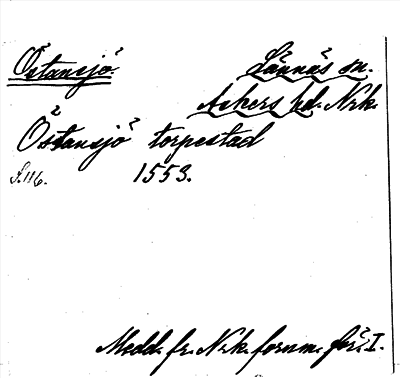 Östansjö.
Lännäs sn.
Askers hd. Nrk.
Östansjö torpestad
S.116. 1553.
Medd. fr. Nrk. fornm. för. I.